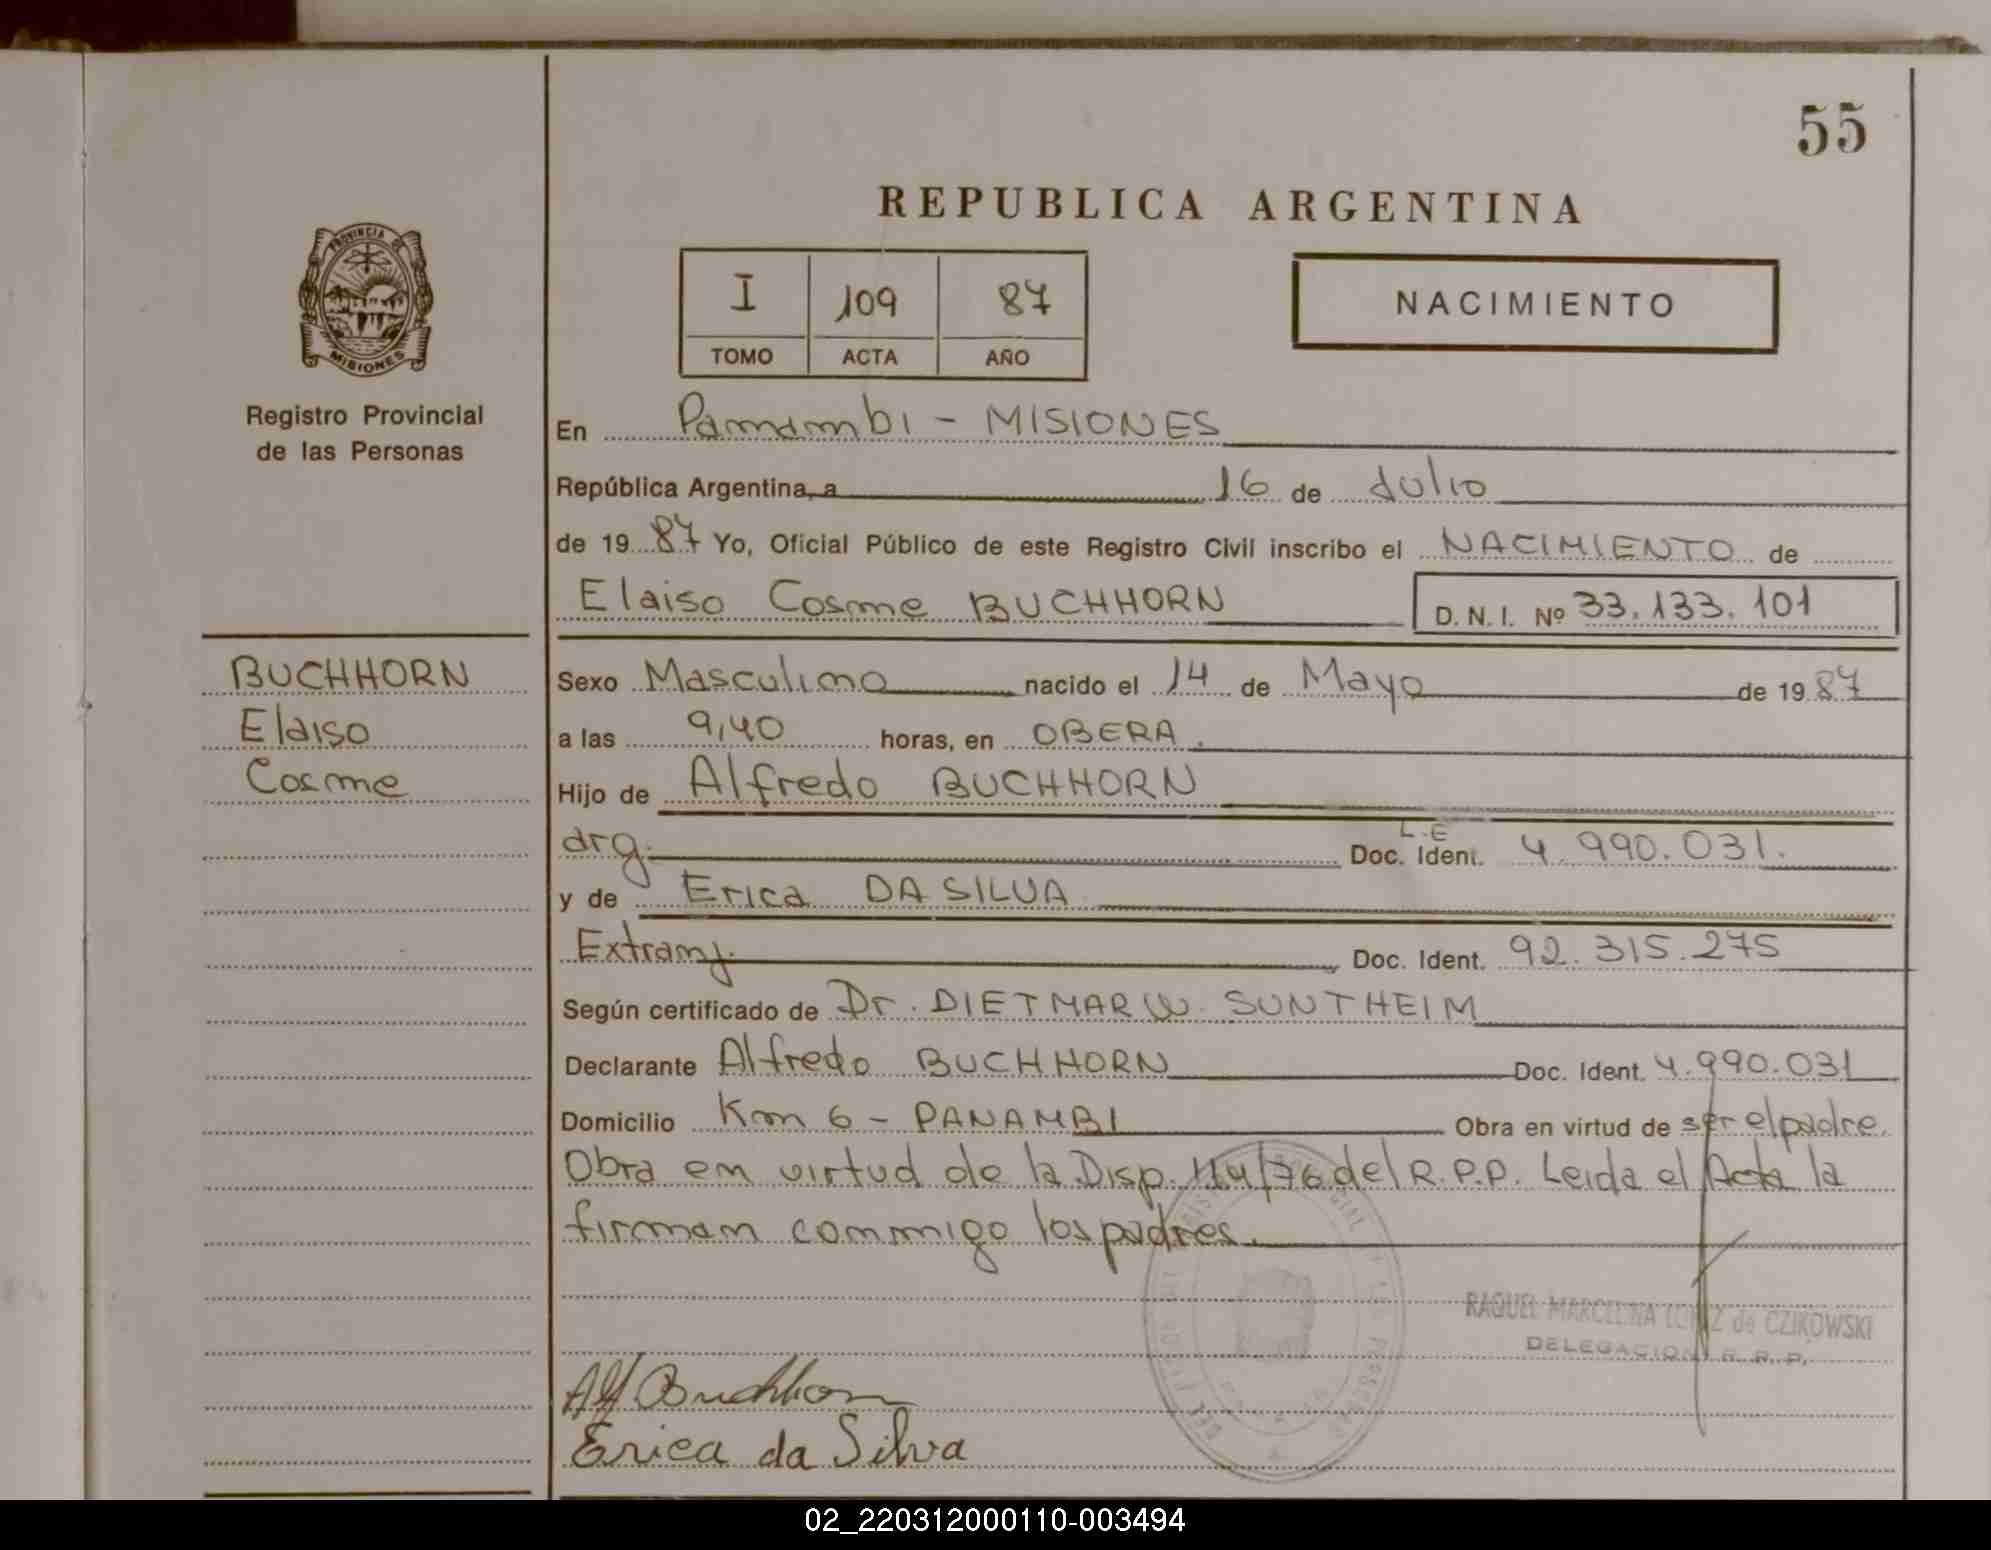 55
REPUBLICA ARGENTINA
PROVINCIA DE
MISIONES
I 109 87
TOMO ACTA AÑO
NACIMIENTO
Registro Provincial
de las Personas
En Panambi - MISIONES
República Argentina, a 16 de Julio
de 19 87 Yo, Oficial Público de este Registro Civil inscribo el NACIMIENTO de
Elaiso Cosme BUCHHORN D. N. I. Nº 33.133.101
BUCHHORN
Elaiso
Cosme
Sexo Masculino nacido el 14 de Mayo de 19 87
a las 9,40 horas, en OBERA.
Hijo de Alfredo BUCHHORN
arg. Doc. Ident. L.E 4.990.031.
y de Erica DA SILVA
Extranj. Doc. Ident. 92.315.275
Según certificado de Dr. DIETMAR W. SUNTHEIM
Declarante Alfredo BUCHHORN Doc. Ident. 4.990.031
Domicilio Km 6 - PANAMBI Obra en virtud de ser el padre.
Obra en virtud de la Disp. 114/76 del R.P.P. Leida el Acta la
firman conmigo los padres.
RAQUEL MARCELINA de CZIKOWSKI
DELEGACION R. R. P.
Alf Buchhorn
Erica da Silva
02_220312000110-003494